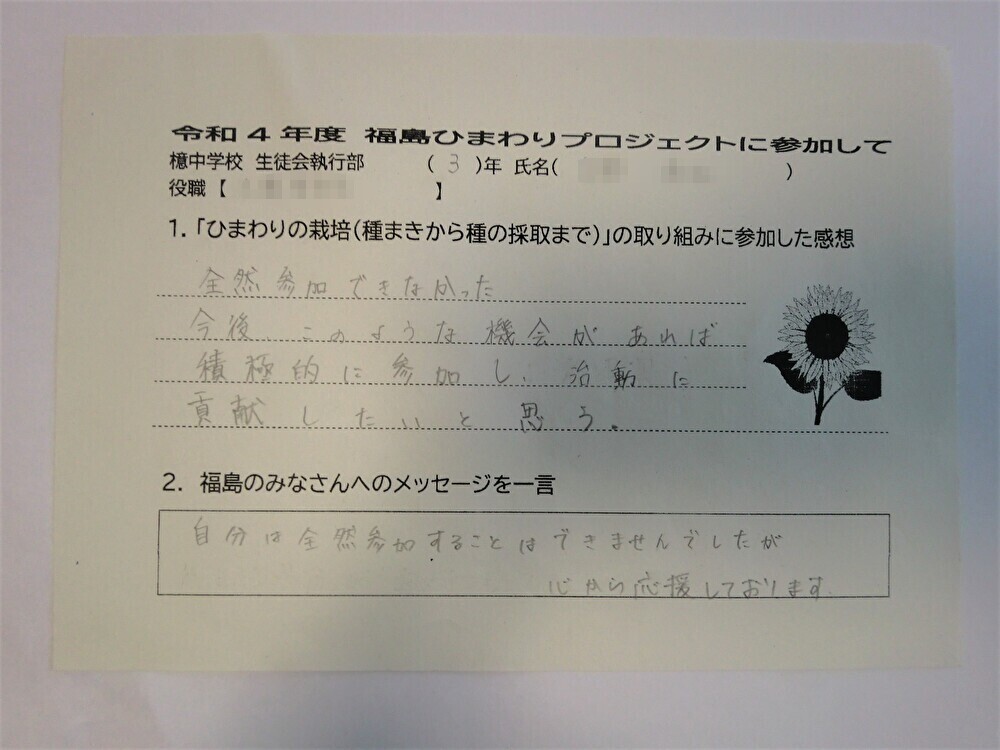 令和4年度 福島ひまわりプロジェクトに参加して
檍中学校 生徒会執行部 (3)年 氏名( )
役職【 】
1.「ひまわりの栽培(種まきから種の採取まで)」の取り組みに参加した感想
全然参加できなかった
今後、このような機会があれば
積極的に参加し、活動に
貢献したいと思う。
2. 福島のみなさんへのメッセージを一言
自分は全然参加することはできませんでしたが
心から応援しております